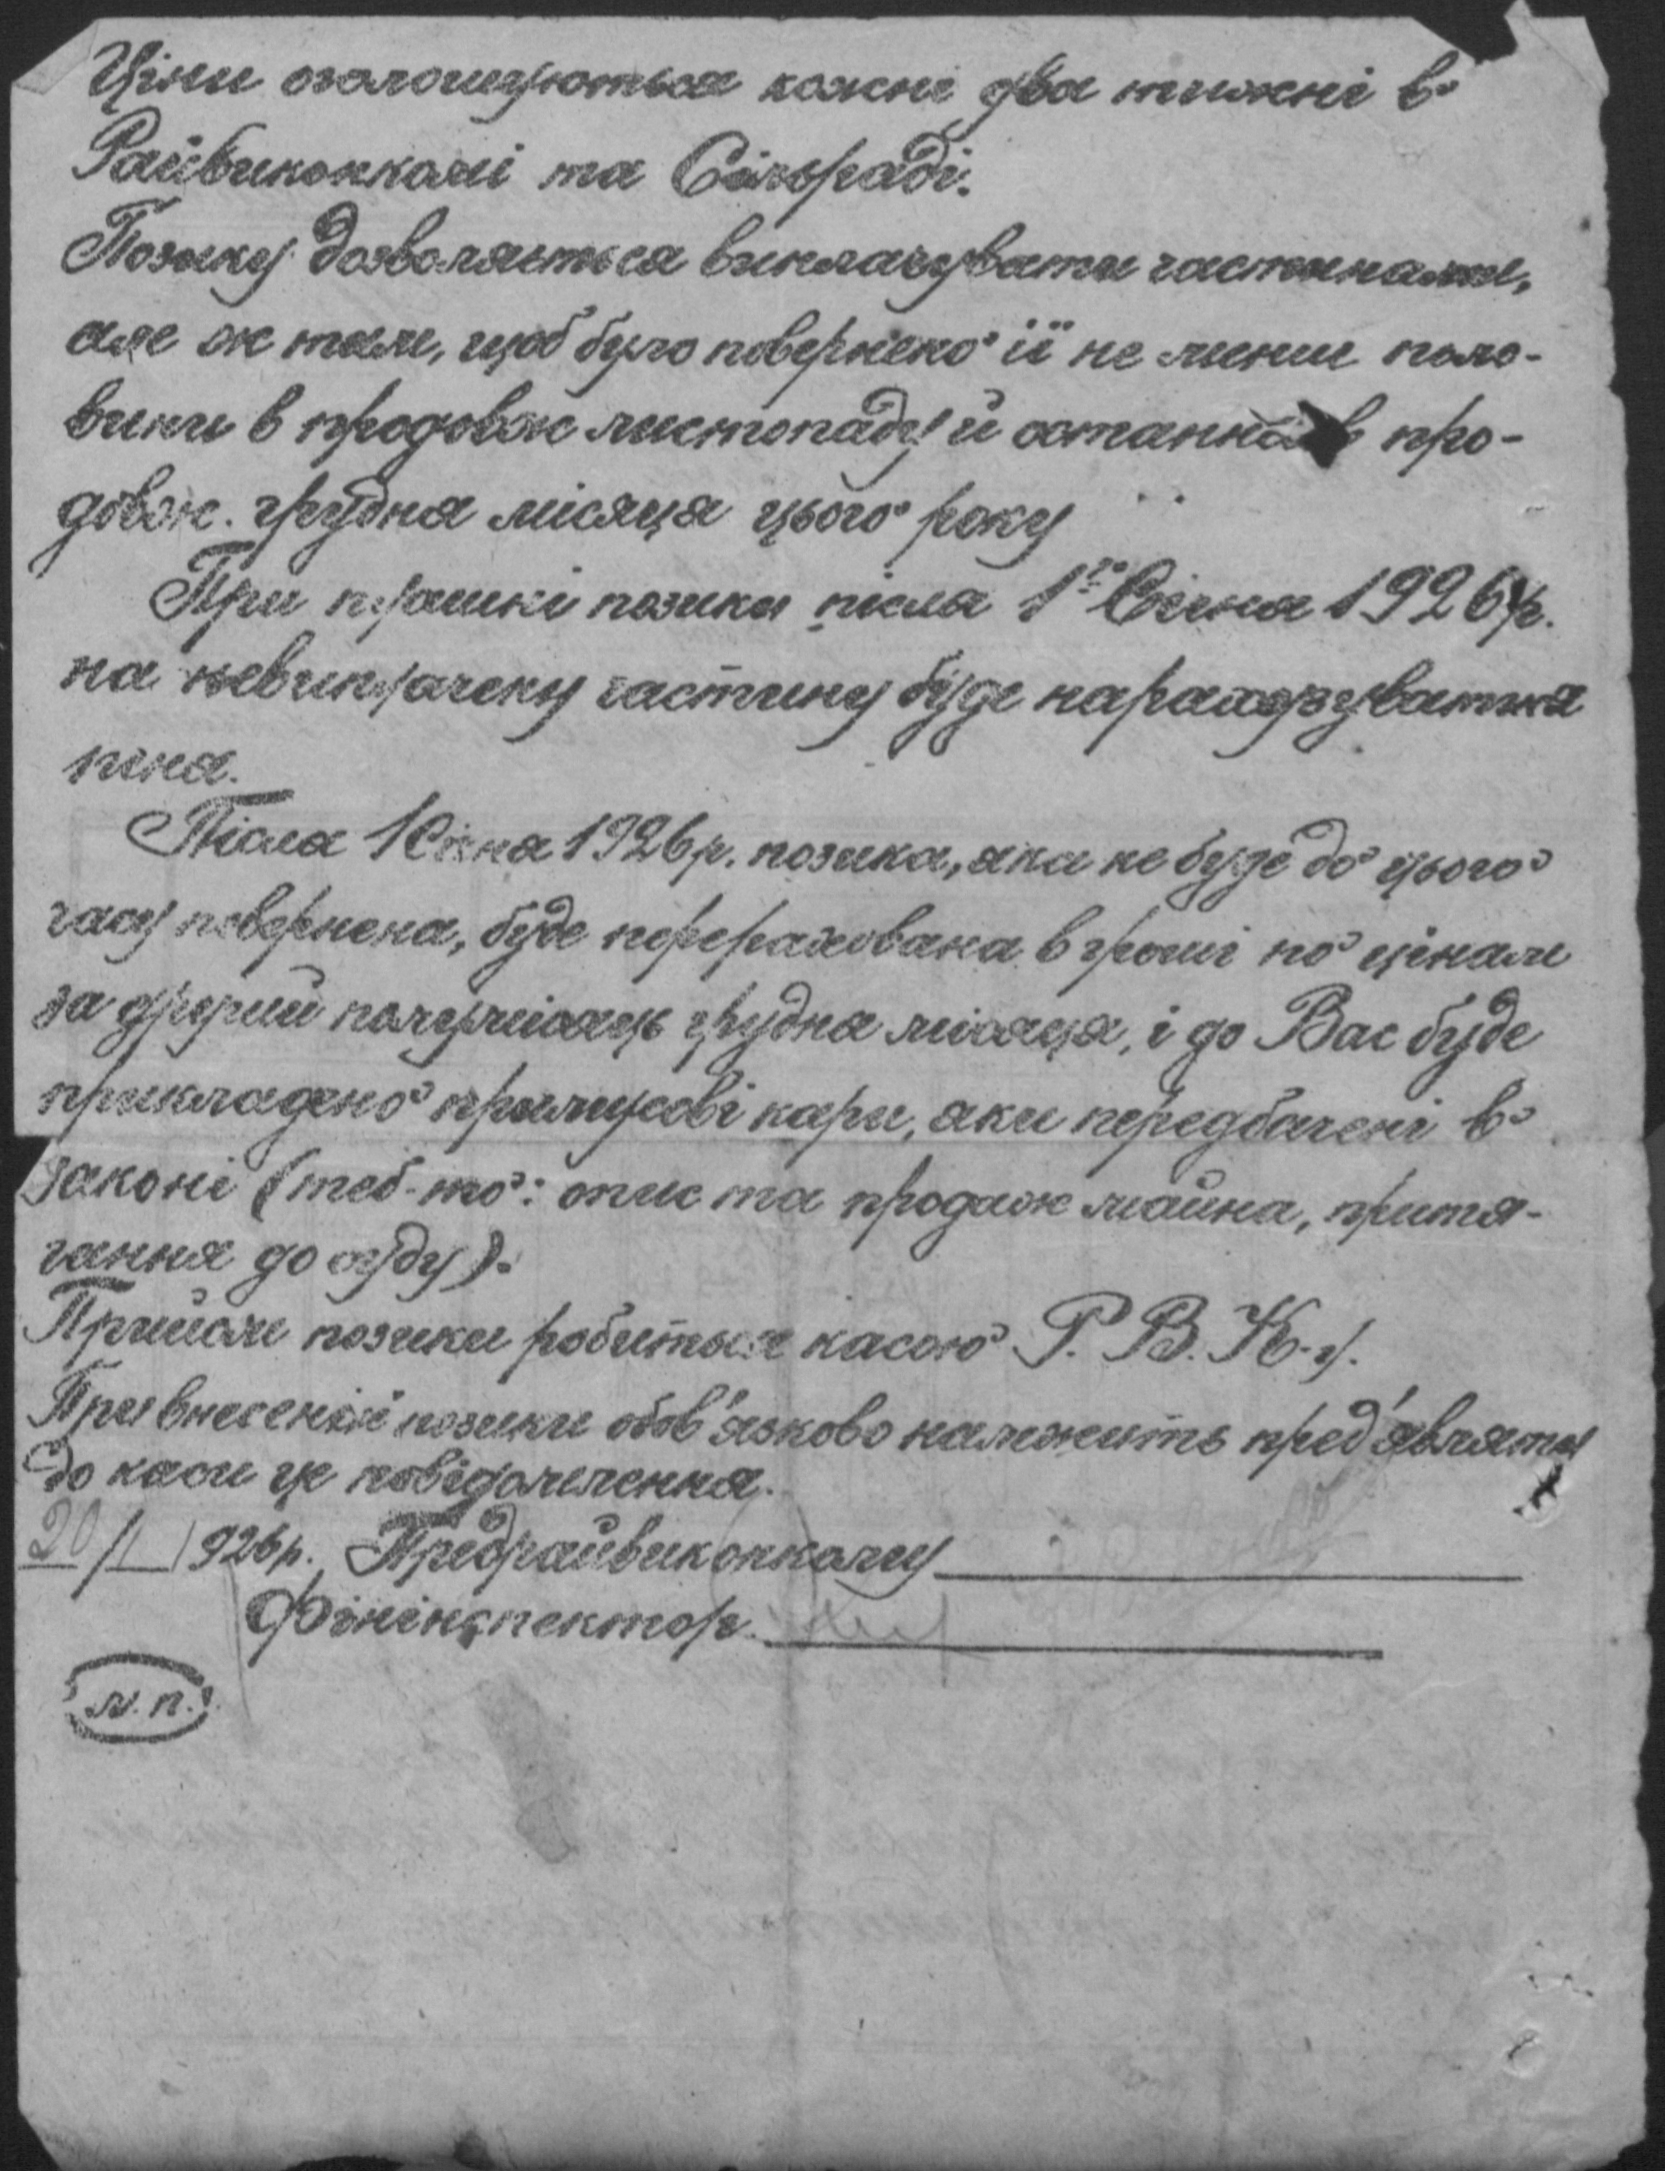 Ціни оголошуються кожні два тижні в
Райвиконкомі та Сільраді.
Позику дозволяється виплачувати частинами,
але ж так, щоб було повернено її не менш поло-
вини в продовж листопаду й остання в про-
довж. грудня місяця цього року
При сплатні позики після 1го Січня 1926 р.
на невиплачену частину буде нараховуватися
піня.
Після 1 Січня 1926 р. позика, яка не буде до цього
часу повернена, буде перерахована в гроші по цінам
за другий полумісяць грудня місяця, і до Вас буде
прикладено примусові кари, аки передбачені в
законі (теб-то: опис та продаж майна, притя-
гання до суду).
Прийом позики робиться касою Р. В. К-у.
При внесенні позики обов'язково належить пред'являти
до каси це повідомлення.
20/І 1926 р. Предрайвиконкому
Фінінспектор
М. П.